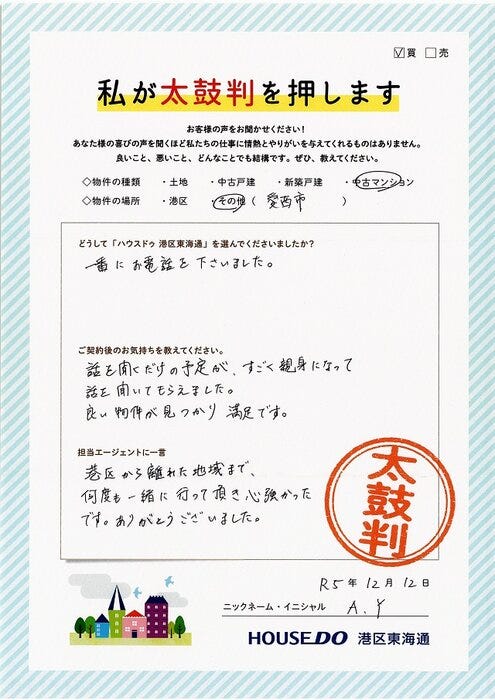 ☑買 □売
私が太鼓判を押します
お客様の声をお聞かせください！
あなた様の喜びの声を聞くほど私たちの仕事に情熱とやりがいを与えてくれるものはありません。
良いこと、悪いこと、どんなことでも結構です。ぜひ、教えてください。
◇物件の種類 ・土地 ・中古戸建 ・新築戸建 ・中古マンション
◇物件の場所 ・港区 ・その他（ 愛西市 ）
どうして「ハウスドゥ 港区東海通」を選んでくださいましたか？
一番にお電話を下さいました。
ご契約後のお気持ちを教えてください。
話を聞くだけの予定が、すごく親身になって
話を聞いてもらえました。
良い物件が見つかり満足です。
担当エージェントに一言
港区から離れた地域まで、
何度も一緒に行って頂き心強かった
です。ありがとうございました。
太鼓判
R5年12月12日
ニックネーム・イニシャル A.Y
HOUSEDO 港区東海通